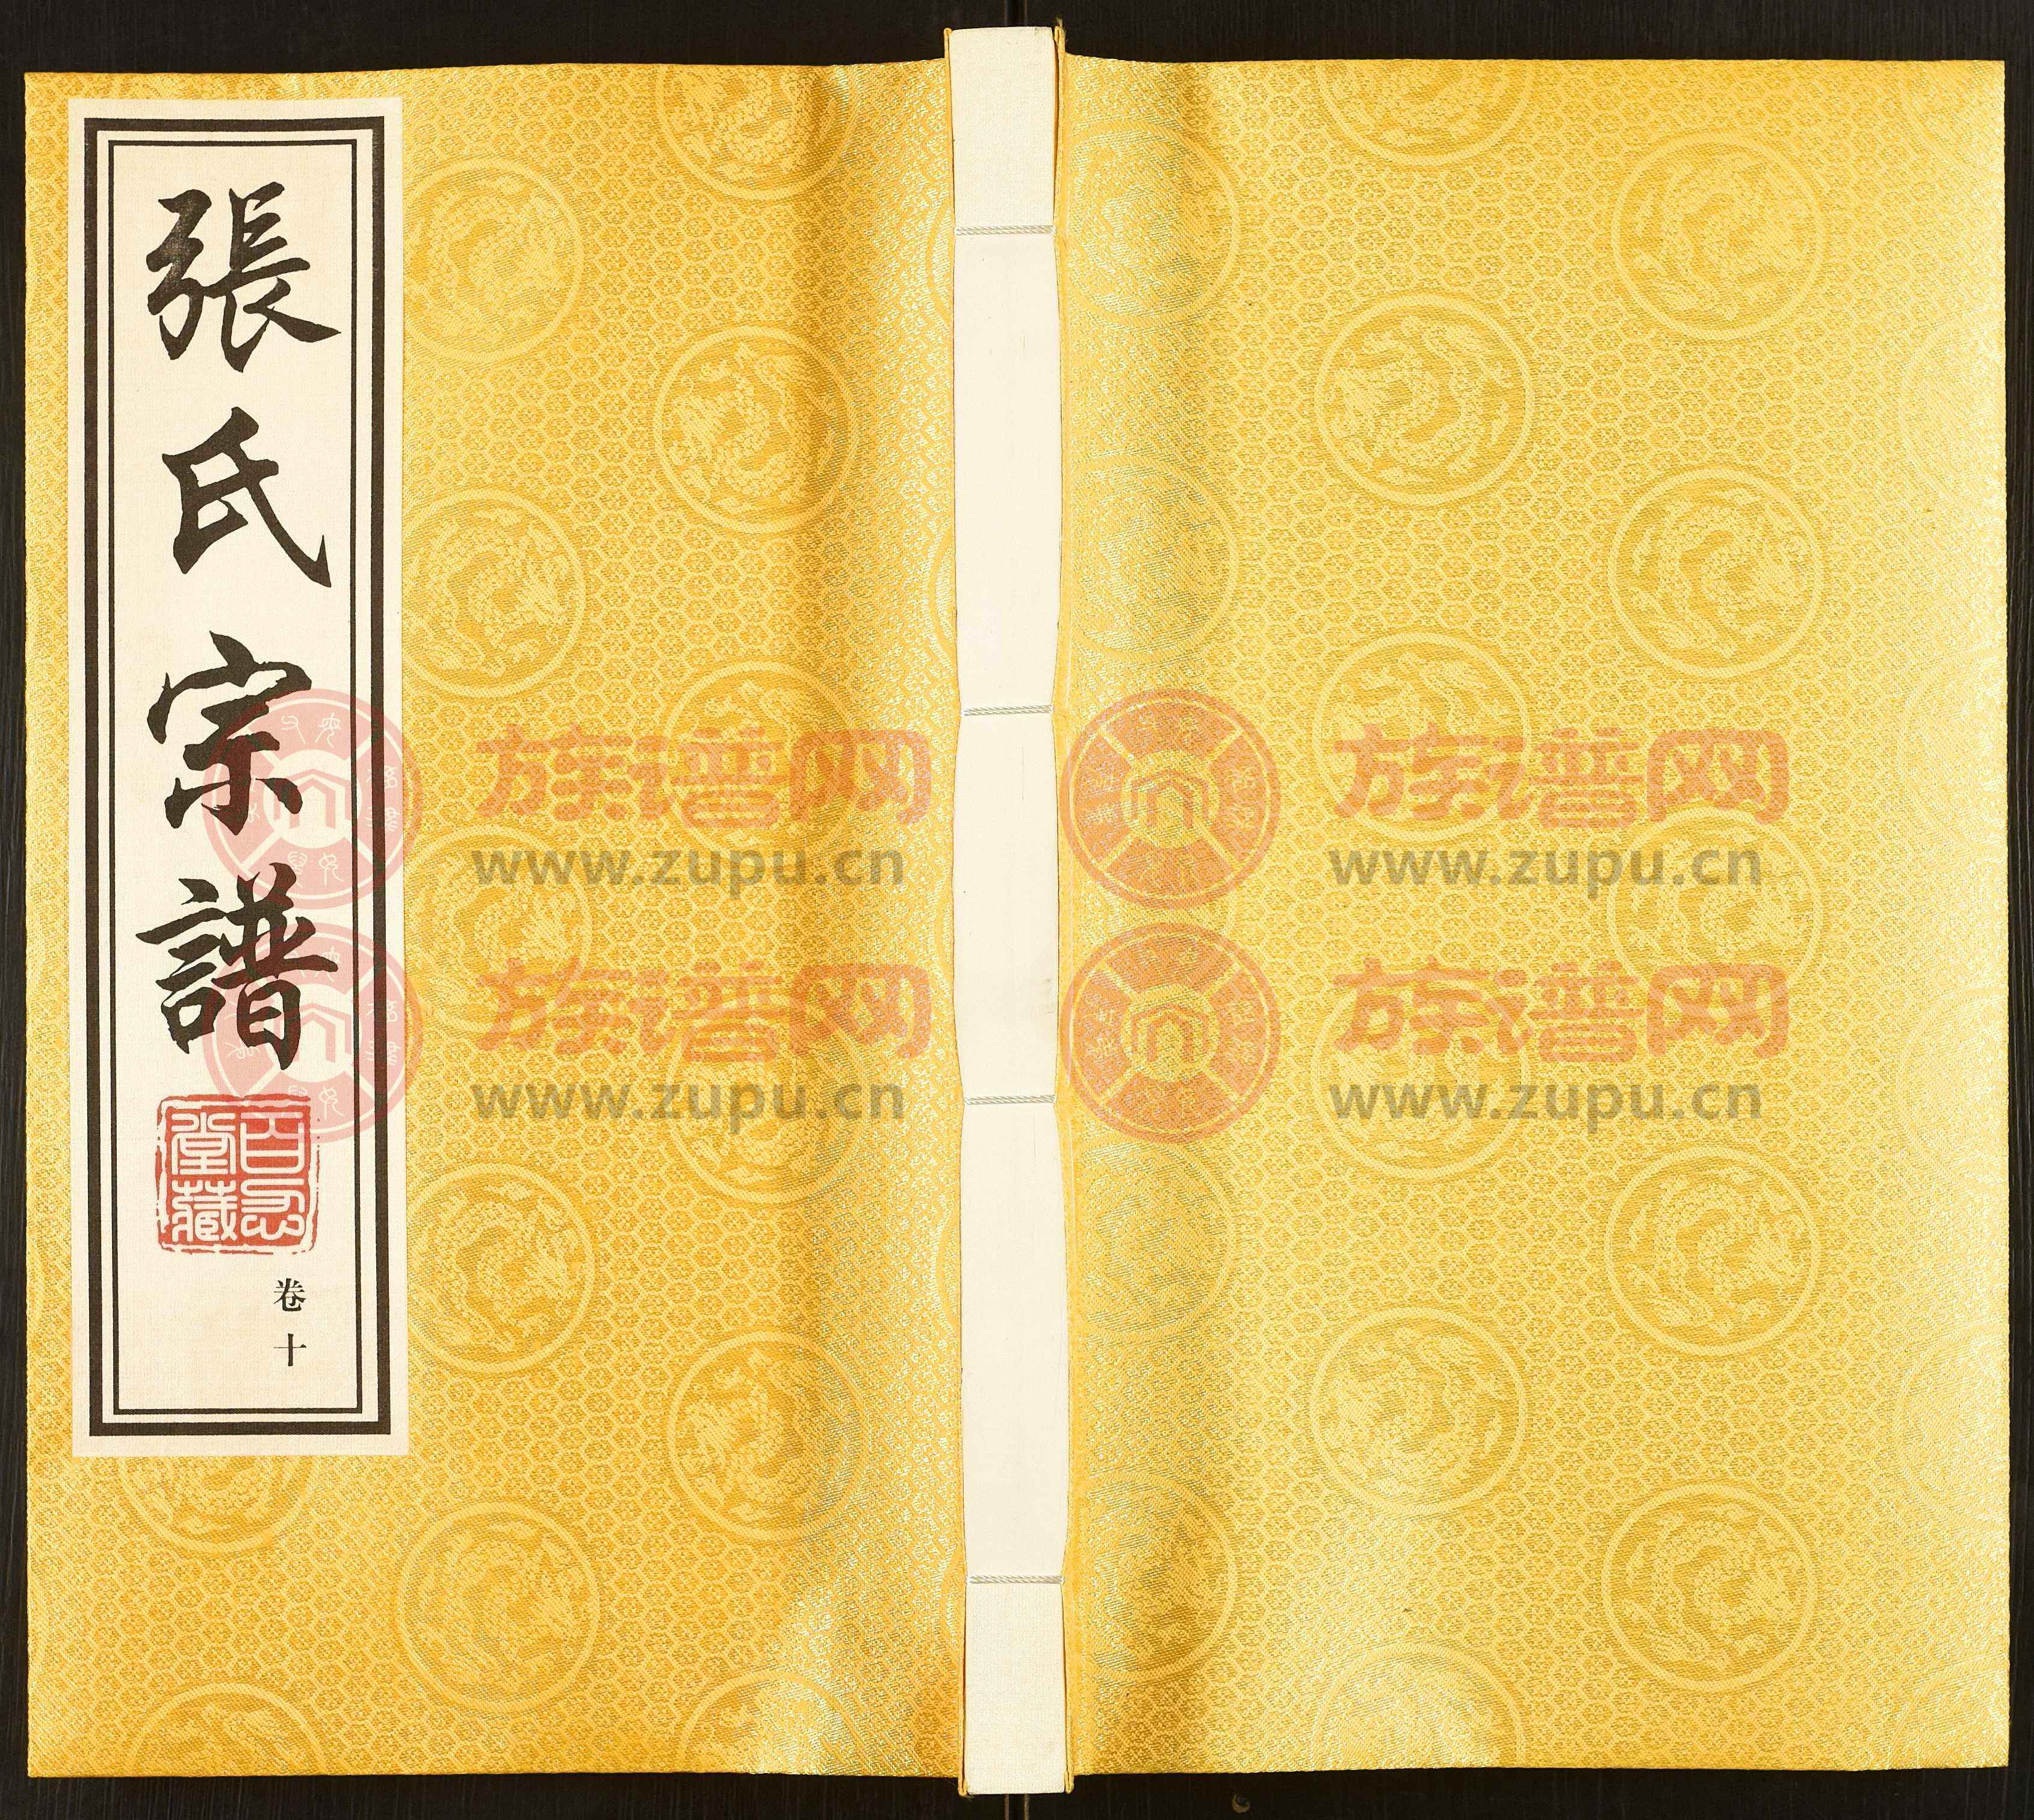 張氏宗譜
百忍堂藏
卷十
族谱网
www.zupu.cn
族谱网
www.zupu.cn
族谱网
www.zupu.cn
族谱网
www.zupu.cn